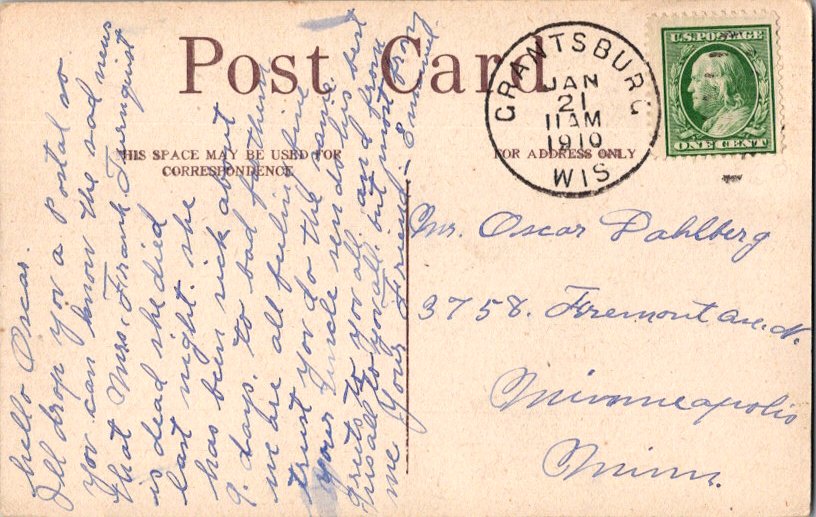 Post Card
THIS SPACE MAY BE USED FOR
CORRESPONDENCE
FOR ADDRESS ONLY
GRANTSBURG
JAN
21
11 AM
1910
WIS
U.S. POSTAGE
ONE CENT
Mr. Oscar Dahlberg
3758. Fremont ave. N.
Minneapolis
Minn.
hello Oscar.
I'll drop you a Postal so
you can know the sad news
that Mrs. Frank Turnquist
is dead she died
last night. she
has been sick about
9. days. to bad for them
we are all feeling fine
trust you do the same.
your Uncle sends his best
to you all. and from
us all to you all. but most from
me Your Friend - Emanuel.